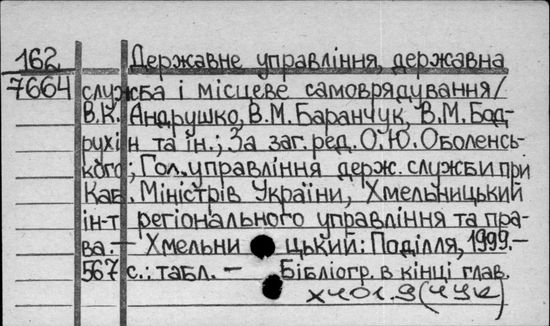 162 Державне управління, державна
7664 служба і місцеве самоврядування/
В.К. Андрушко, В.М. Баранчук, В.М. Бад-
рухін та ін.; За заг. ред. О.Ю. Оболенсь-
кого; Гол. управління держ. служби при
Каб. Міністрів України, Хмельницький
ін-т регіонального управління та пра-
ва. – Хмельницький: Поділля, 1999. –
567 с.: табл. – Бібліогр. в кінці глав.
Х401.9(4УК)